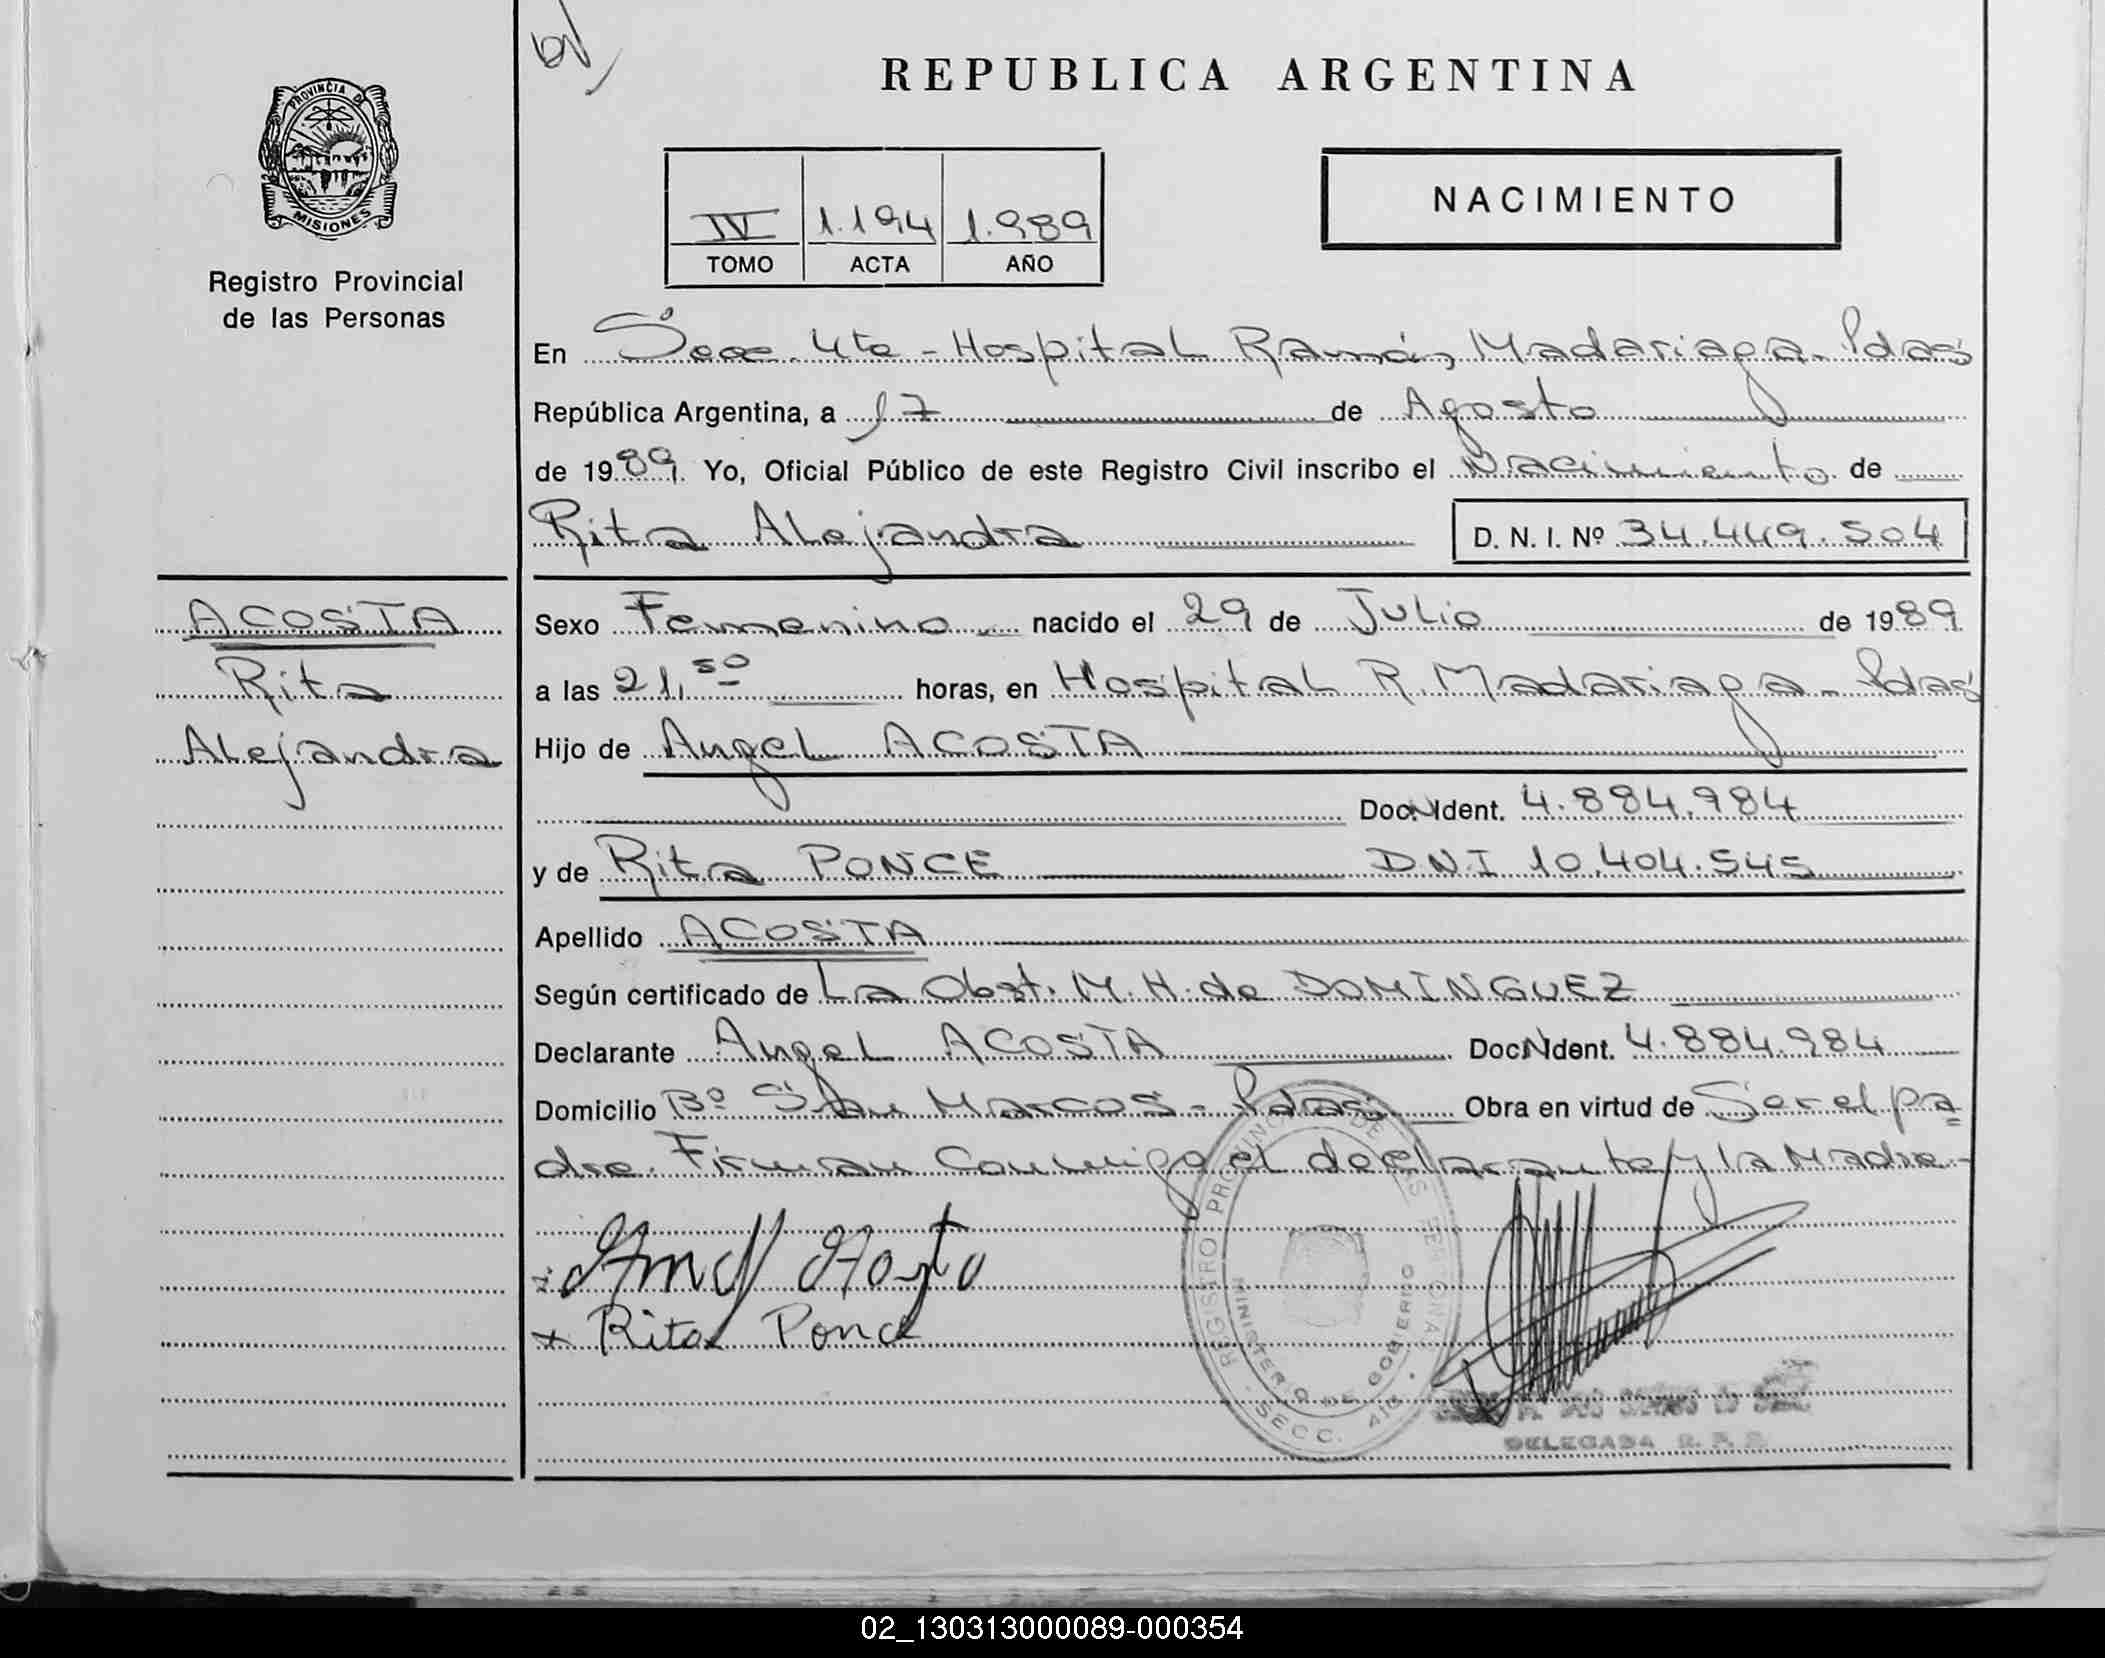 REPUBLICA ARGENTINA
PROVINCIA DE
MISIONES
Registro Provincial
de las Personas
IV 1.194 1.989
TOMO ACTA AÑO
NACIMIENTO
En Secc. 4ta - Hospital Ramón Madariaga - Pdas
República Argentina, a 17 de Agosto
de 1989. Yo, Oficial Público de este Registro Civil inscribo el Nacimiento de
Rita Alejandra D. N. I. Nº 34.449.504
ACOSTA
Rita
Alejandra
Sexo Femenino nacido el 29 de Julio de 1989
a las 21,50 horas, en Hospital R. Madariaga - Pdas
Hijo de Angel ACOSTA
Doc. Ident. 4.884.984
y de Rita PONCE DNI 10.404.545
Apellido ACOSTA
Según certificado de La Obst. M. H. de DOMINGUEZ
Declarante Angel ACOSTA Doc. Ident. 4.884.984
Domicilio Bº San Marcos - Pdas Obra en virtud de Ser el pa=
dre. Firman Conmigo el declarante y la Madre -
x Rita Ponce
REGISTRO PROVINCIAL DE LAS PERSONAS
MINISTERIO DE GOBIERNO
SECC. 4ta
DELEGADA R. P. P.
02_130313000089-000354